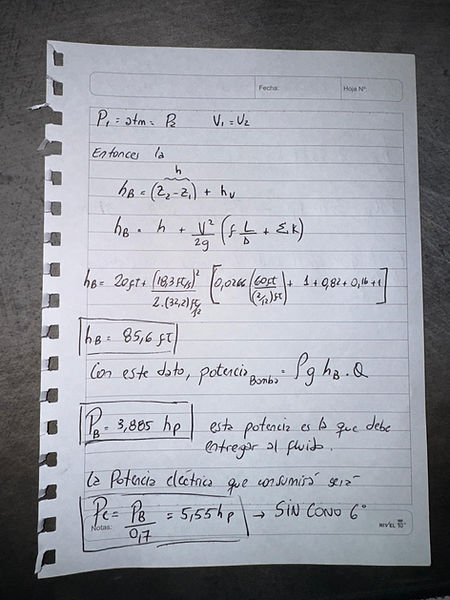 Fecha: Hoja Nº:
P₁ = atm = P₂ V₁ = V₂
Entonces la
h
h_B = (Z₂ - Z₁) + h_v
h_B = h + V²/2g (f L/D + Σ K)
h_B = 20ft + (18,3 ft/s)²/2.(32,2) ft/s² [0,0266 (60ft/(2/12) ft) + 1 + 0,82 + 0,16 + 1]
h_B = 85,6 ft
Con este dato, potencia Bomba = ρ g h_B . Q
P_B = 3,885 hp esta potencia es la que debe
entregar al fluido.
La Potencia eléctrica que consumirá será
Pc = P_B/0,7 = 5,55 hp → SIN CONO 6°
Notas: